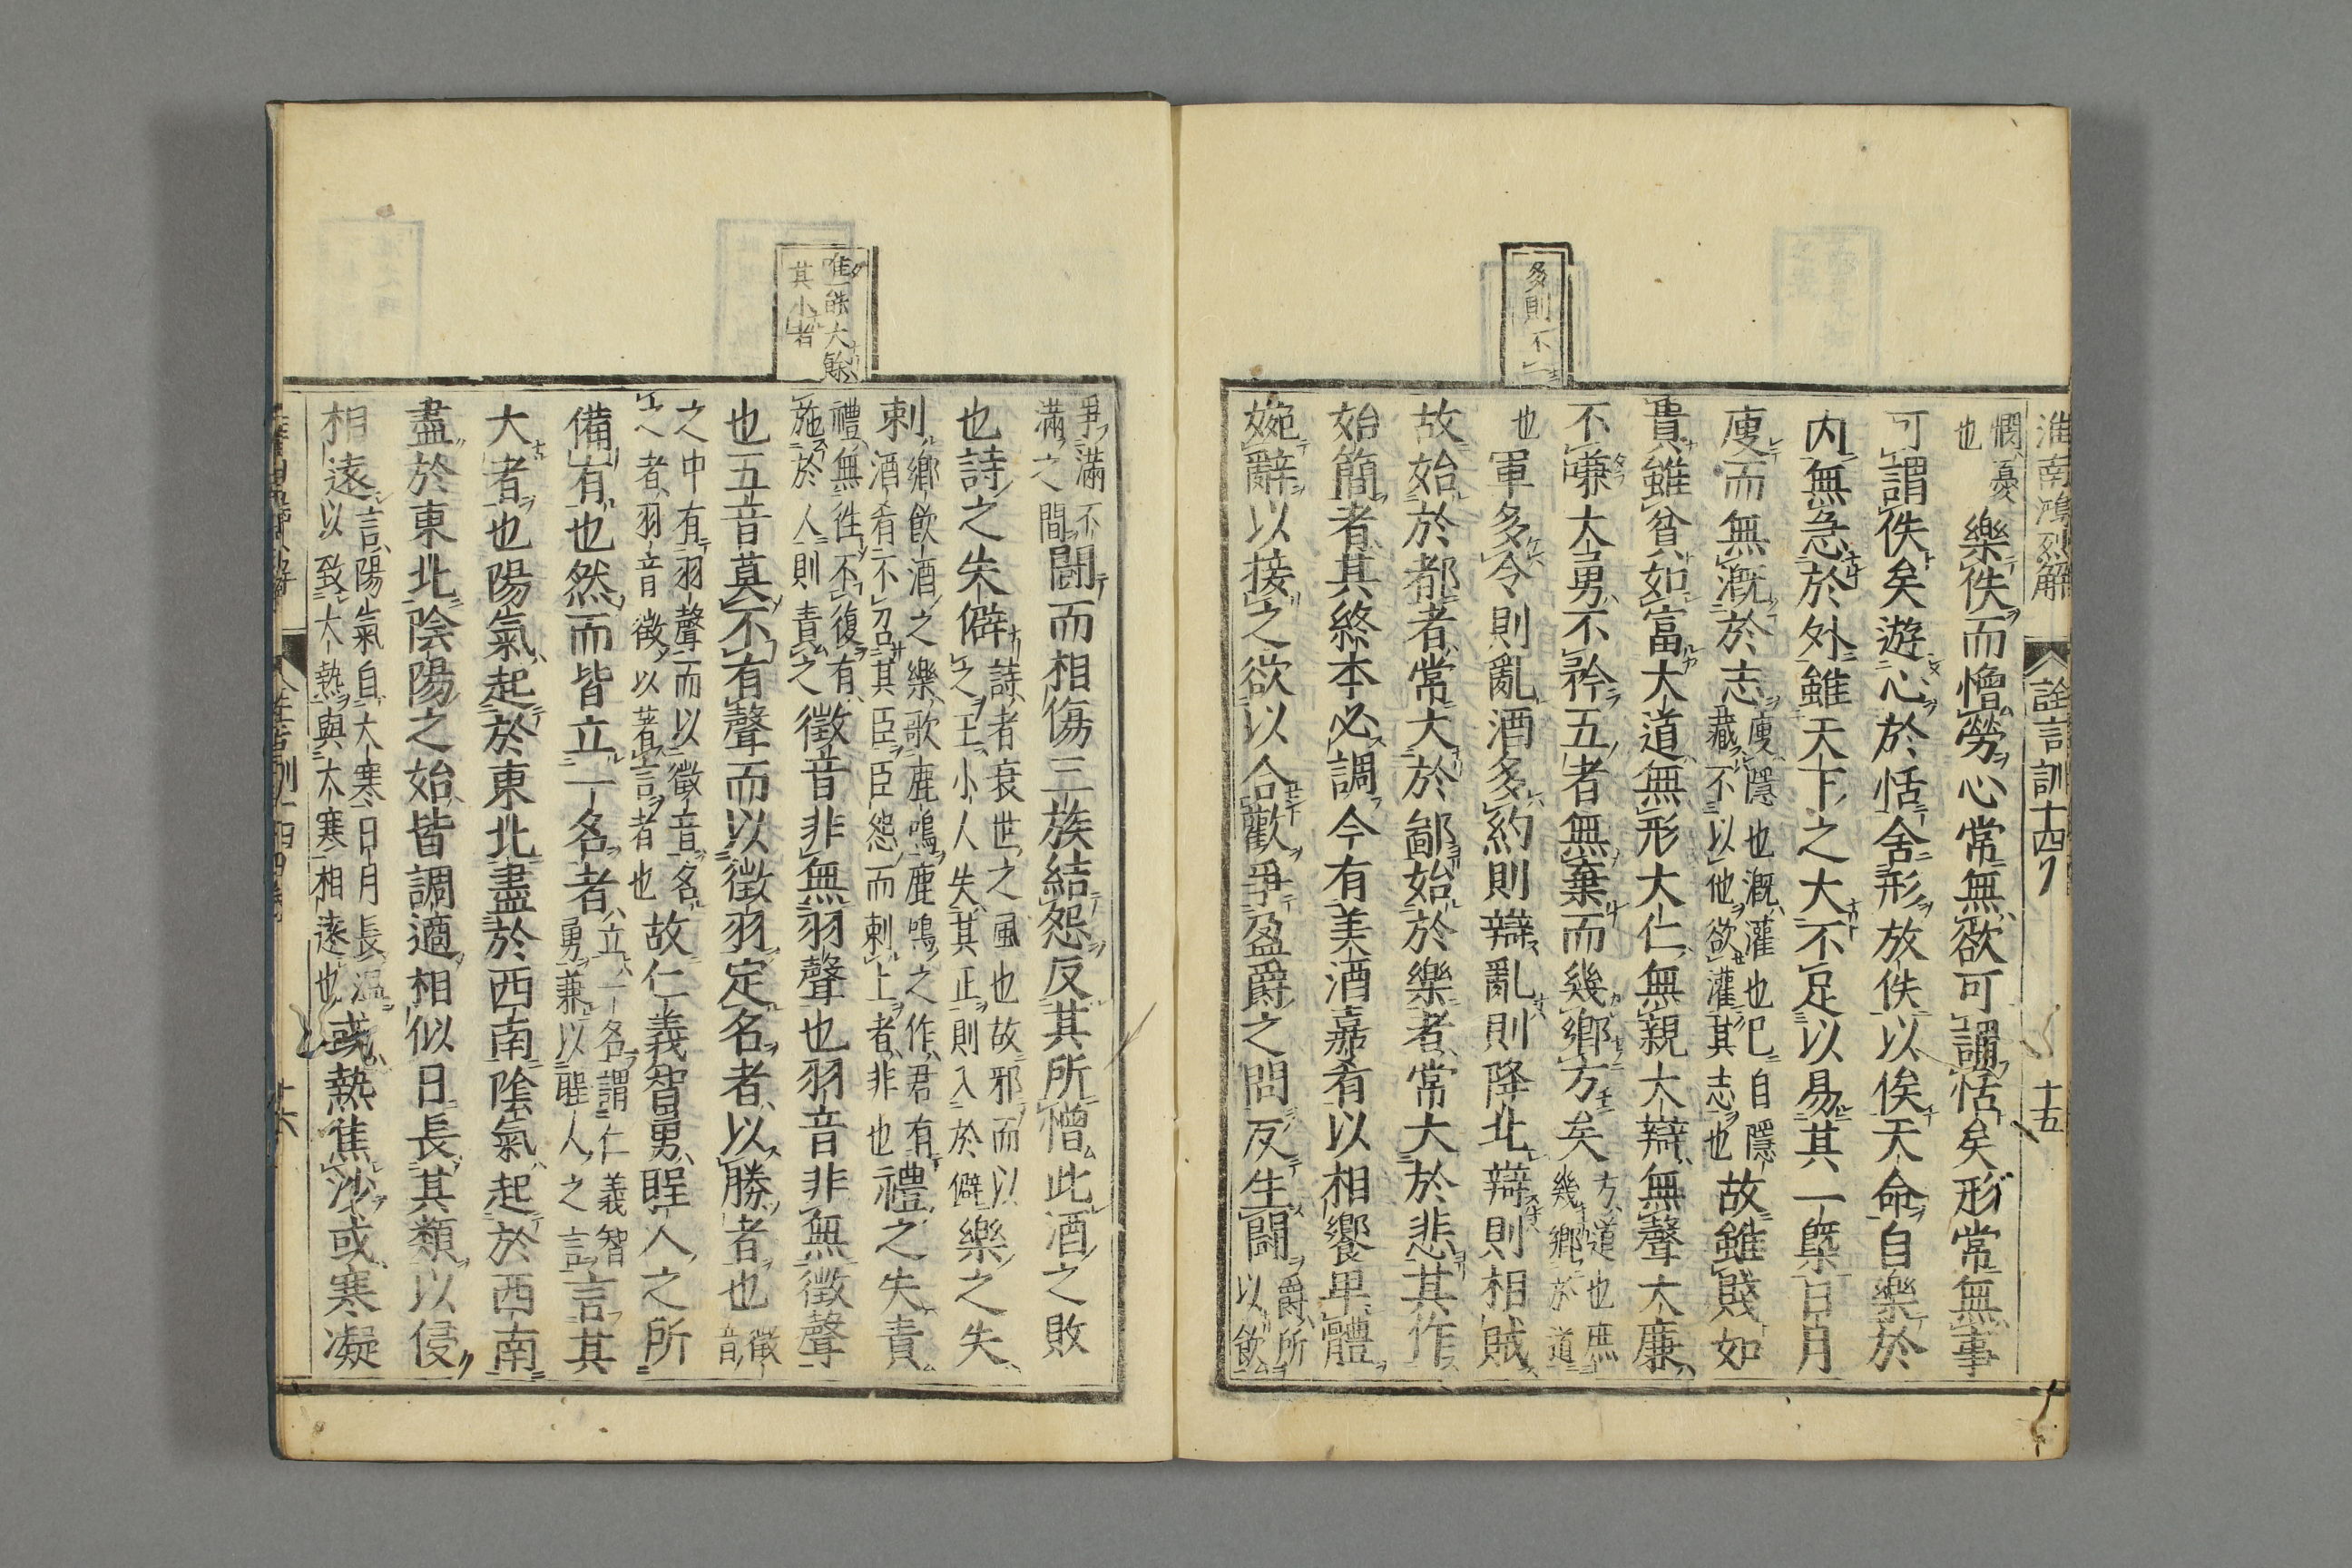 淮南鴻烈解
詮言訓十四
十五
憪憂
也
樂佚而憎勞心常無欲可謂恬矣形常無事
可謂佚矣遊心於恬舍形放佚以俟天命自樂於
內無急於外雖天下之大不足以易其一槩日月
廋而無溉於志
廋隱也溉灌也已自隱
藏不以他欲灌其志也
故雖賤如
貴雖貧如富大道無形大仁無親大辯無聲大廉
不嗛大勇不矜五者無棄而幾鄉方矣
方道也庶
幾鄉於道
也
軍多令則亂酒多約則辯亂則降北辯則相賊
故始於都者常大於鄙始於樂者常大於悲其作
始簡者其終本必調今有美酒嘉肴以相饗卑體
婉辭以接之欲以合歡爭盈爵之間反生鬪
爵所
以飲
多則不
爭滿不
滿之間
鬪而相傷三族結怨反其所憎此酒之敗
也詩之失僻
詩者衰世之風也故邪而以
之王小人失其正則入於僻
樂之失
刺
鄉飲酒之樂歌鹿鳴鹿鳴之作君有
酒肴不召其臣臣怨而刺上者非也
禮之失責
禮無往不復有
施於人則責之
徵音非無羽聲也羽音非無徵聲
也五音莫不有聲而以徵羽定名者以勝者也
徵
音
之中有羽聲而以徵音名
之者羽音徵以著言者也
故仁義智勇聖人之所
備有也然而皆立一名者
立一名謂仁義智
勇兼以聖人之言
言其
大者也陽氣起於東北盡於西南陰氣起於西南
盡於東北陰陽之始皆調適相似日長其類以侵
相遠
言陽氣自大寒日月長溫
以致大熱與大寒相遠也
或熱焦沙或寒凝
唯能大餘
其小者
十六